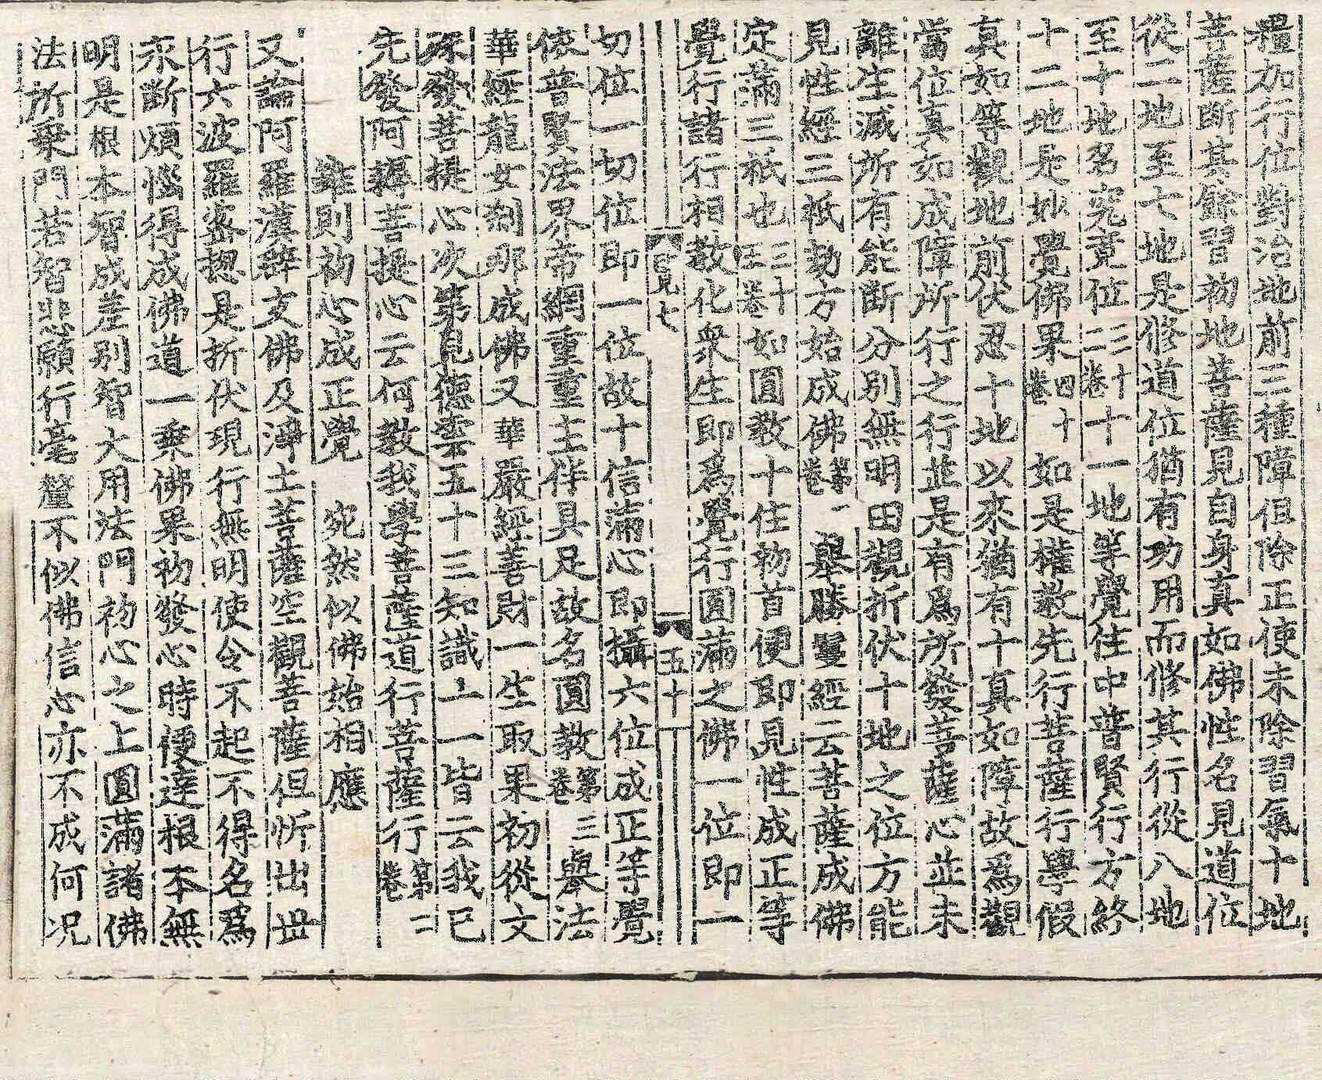 糧加行位對治地前三種障但除正使未除習氣十地
菩薩斷其餘習初地菩薩見自身真如佛性名見道位
從二地至七地是修道位猶有功用而修其行從八地
至十地名究竟位三十二卷十一地等覺住中普賢行方終
十二地是妙覺佛果四十卷如是權敎先行菩薩行學假
真如等觀地前伏忍十地以來猶有十真如障故爲觀
當位真如成障所行之行並是有爲所發菩薩心並未
離生滅所有能斷分別無明田觀折伏十地之位方能
見性經三祇劫方始成佛第一卷擧勝鬘經云菩薩成佛
定滿三祇也三十三卷如圓敎十住初首便即見性成正等
覺行諸行相敎化衆生即爲覺行圓滿之佛一位即一
見七 五十
切位一切位即一位故十信滿心即攝六位成正等覺
依普賢法界帝網重重主伴具足故名圓敎第三卷擧法
華經龍女刹那成佛又華嚴經善財一生取果初從文
殊發菩提心次第見德雲五十三知識一一皆云我已
先發阿耨菩提心云何敎我學菩薩道行菩薩行第二卷
雖則初心成正覺 宛然似佛始相應
又論阿羅漢辟支佛及淨土菩薩空觀菩薩但忻出世
行六波羅密摠是折伏現行無明使令不起不得名爲
永斷煩惱得成佛道一乘佛果初發心時便達根本無
明是根本智成差別智大用法門初心之上圓滿諸佛
法所乘門若智悲願行毫釐不似佛信心亦不成何况